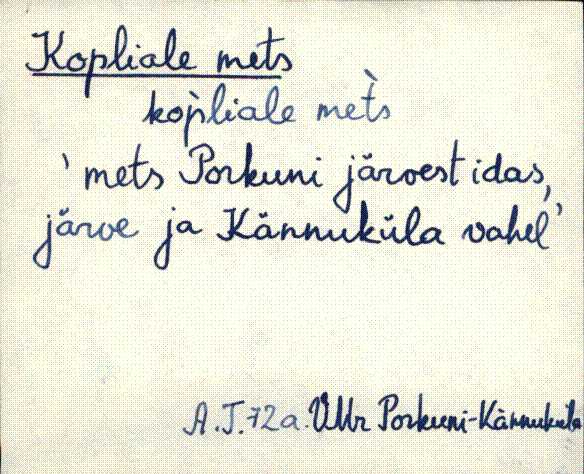 Kopliale mets
kop̀liale met̀s
'mets Porkuni järvest idas,
järve ja Kännuküla vahel'
A.J.72a. VMr Porkuni-Kännuküla